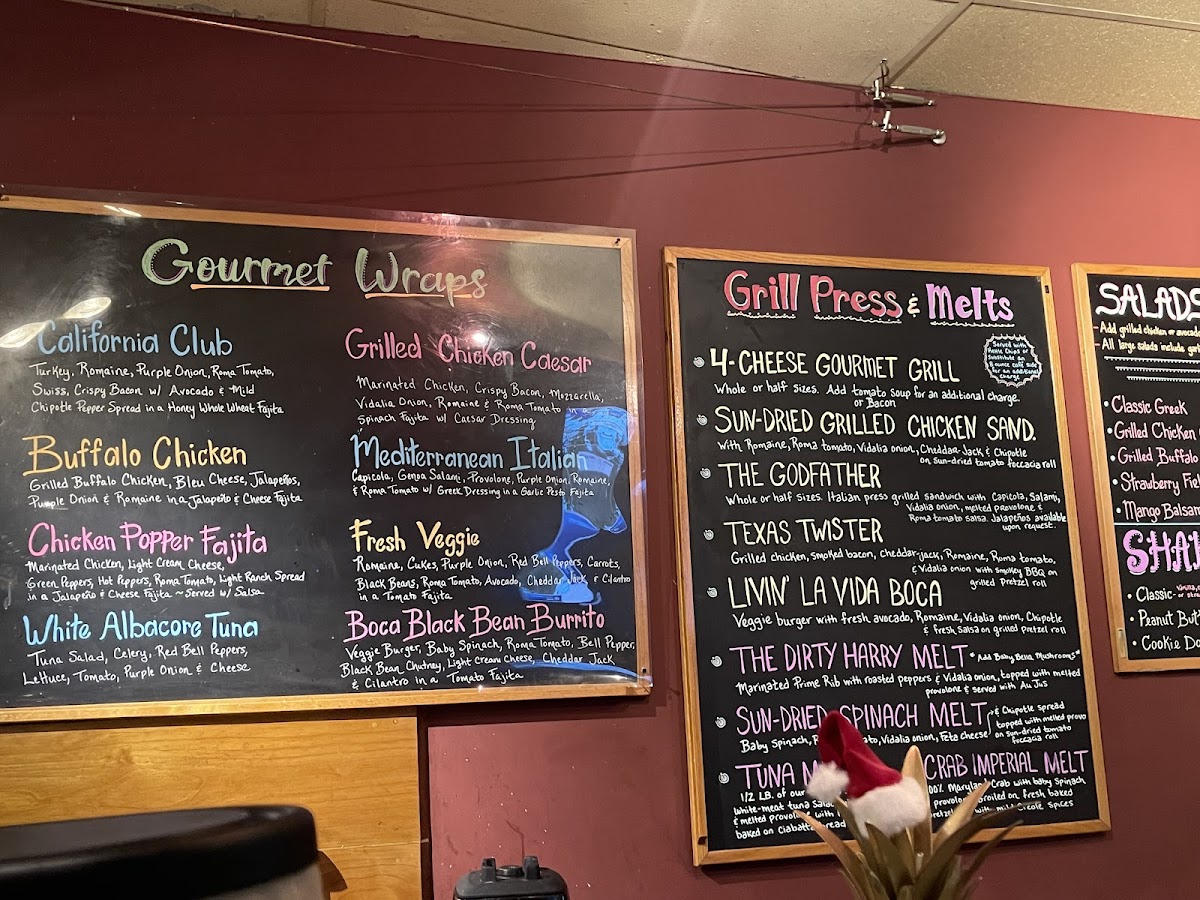 Gourmet Wraps
California Club
Turkey, Romaine, Purple Onion, Roma Tomato,
Swiss, Crispy Bacon w/ Avocado & Mild
Chipotle Pepper Spread in a Honey Whole Wheat Fajita
Buffalo Chicken
Grilled Buffalo Chicken, Bleu Cheese, Jalapeños,
Purple Onion & Romaine in a Jalapeño & Cheese Fajita
Chicken Popper Fajita
Marinated Chicken, Light Cream Cheese,
Green Peppers, Hot Peppers, Roma Tomato, Light Ranch Spread
in a Jalapeño & Cheese Fajita ~ Served w/ Salsa
White Albacore Tuna
Tuna Salad, Celery, Red Bell Peppers,
Lettuce, Tomato, Purple Onion & Cheese
Grilled Chicken Caesar
Marinated Chicken, Crispy Bacon, Mozzarella,
Vidalia Onion, Romaine & Roma Tomato in
Spinach Fajita w/ Caesar Dressing
Mediterranean Italian
Capicola, Genoa Salami, Provolone, Purple Onion, Romaine,
& Roma Tomato w/ Greek Dressing in a Garlic Pesto Fajita
Fresh Veggie
Romaine, Cukes, Purple Onion, Red Bell Peppers, Carrots,
Black Beans, Roma Tomato, Avocado, Cheddar Jack, & Cilantro
in a Tomato Fajita
Boca Black Bean Burrito
Veggie Burger, Baby Spinach, Roma Tomato, Bell Pepper,
Black Bean Chutney, Light Cream Cheese, Cheddar Jack
& Cilantro in a Tomato Fajita
Grill Press & Melts
Served with
Kettle Chips or
Substitute an
ounce cold side
for an additional
charge
4-CHEESE GOURMET GRILL
Whole or half sizes. Add tomato soup for an additional charge.
or Bacon
SUN-DRIED GRILLED CHICKEN SAND.
with Romaine, Roma tomato, Vidalia onion, Cheddar-Jack & Chipotle
on Sun-dried tomato foccacia roll
THE GODFATHER
Whole or half sizes. Italian press grilled sandwich with Capicola, Salami,
Vidalia onion, melted provolone &
Roma tomato salsa. Jalapeños available
upon request.
TEXAS TWISTER
Grilled chicken, smoked bacon, cheddar-jack, Romaine, Roma tomato,
& Vidalia onion with smokey BBQ on
grilled Pretzel roll
LIVIN' LA VIDA BOCA
Veggie burger with fresh avocado, Romaine, Vidalia onion, Chipotle
& fresh Salsa on grilled Pretzel roll
THE DIRTY HARRY MELT *Add Baby Bella Mushrooms*
Marinated Prime Rib with roasted peppers & Vidalia onion, topped with melted
provolone & served with Au Jus
SUN-DRIED SPINACH MELT
Baby Spinach, Vidalia onion, Feta cheese
& Chipotle spread
topped with melted provo
on sun-dried tomato
foccacia roll
TUNA
1/2 LB. of our
white-meat tuna Salad
& melted provo with
baked on Ciabatta bread
CRAB IMPERIAL MELT
100% Maryland Crab with baby Spinach
provolone broiled on fresh baked
with mild Creole Spices
SALADS
-Add grilled chicken or avocado
-All large salads include
• Classic Greek
• Grilled Chicken
• Grilled Buffalo
• Strawberry
• Mango Balsam
SHA
• Classic-
• Peanut But
• Cookie Do